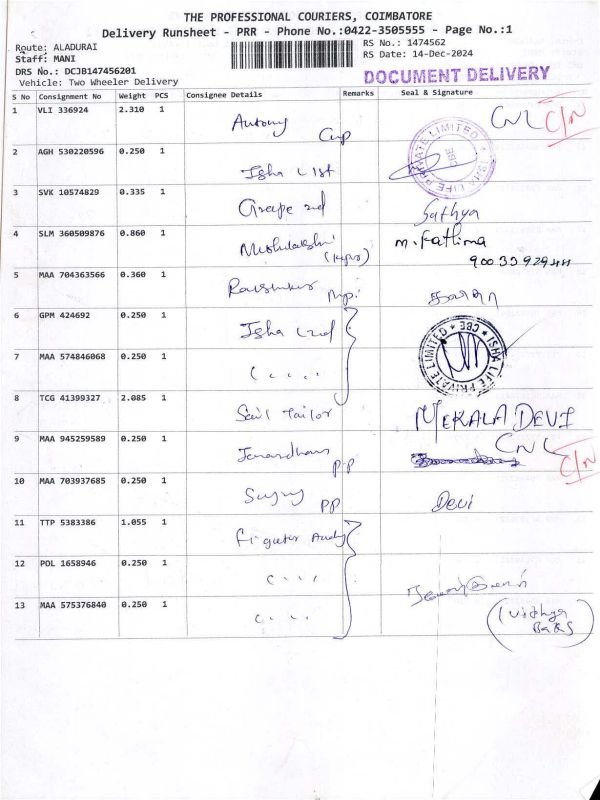 THE PROFESSIONAL COURIERS, COIMBATORE
Delivery Runsheet - PRR - Phone No.:0422-3505555 - Page No.:1
Route: ALADURAI
RS No.: 1474562
Staff: MANI
RS Date: 14-Dec-2024
DRS No.: DCJB147456201
DOCUMENT DELIVERY
Vehicle: Two Wheeler Delivery
S No Consignment No Weight PCS Consignee Details Remarks Seal & Signature
1 VLI 336924 2.310 1 Antony CNL C/N
2 AGH 530220596 0.250 1 Isha ISHA LIFE PRIVATE LIMITED CBE
3 SVK 10574829 0.335 1 Grape Sathya
4 SLM 360509876 0.860 1 M. Fathima
5 MAA 704363566 0.360 1
6 GPM 424692 0.250 1 Isha ISHA LIFE PRIVATE LIMITED CBE
7 MAA 574846068 0.250 1
8 TCG 41399327 2.085 1 Sail Tailor MEKALA DEVI
9 MAA 945259589 0.250 1 PP CNL C/N
10 MAA 703937685 0.250 1 PP Devi
11 TTP 5383386 1.055 1
12 POL 1658946 0.250 1
13 MAA 575376840 0.250 1